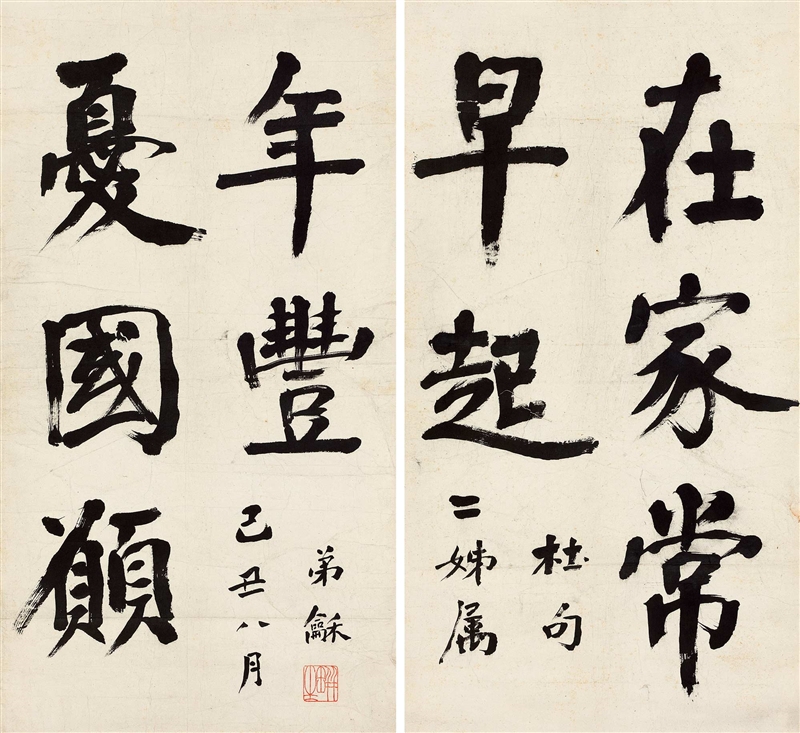 在家常
早起
杜句
二姊属
憂國願
年豐
己丑八月
弟龢